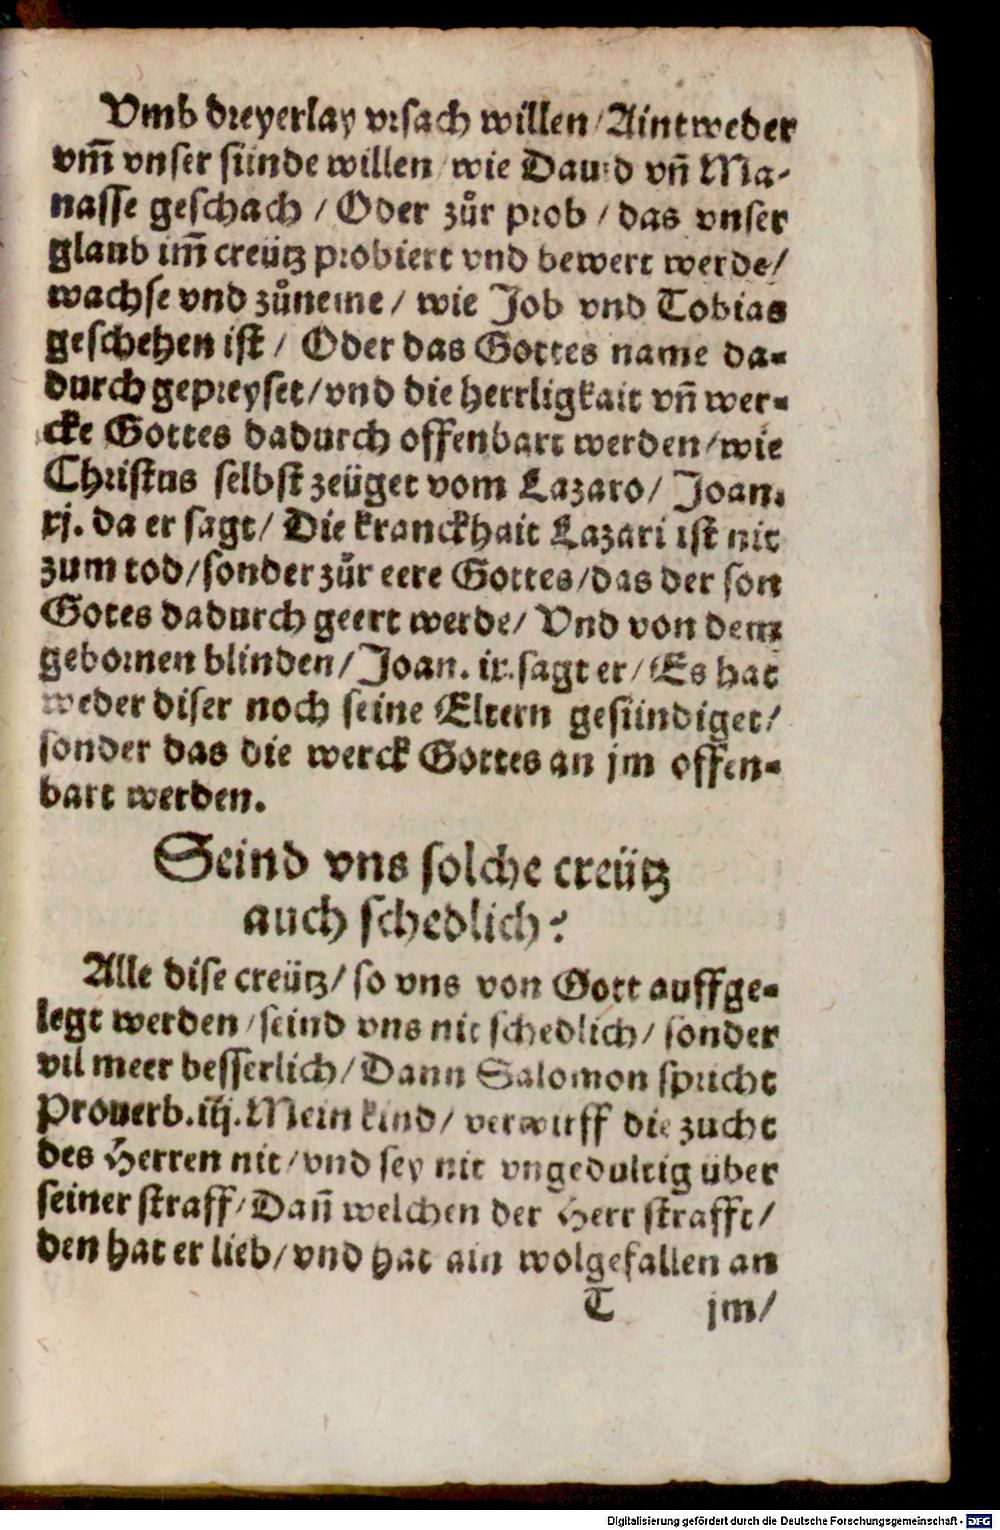 Vmb dreyerlay vrsach willen / Aintweder
vm̄ vnser sünde willen / wie Dauid vñ Ma-
nasse geschach / Oder zůr prob / das vnser
glaub im̄ creütz probiert vnd bewert werde /
wachse vnd zůneme / wie Job vnd Tobias
geschehen ist / Oder das Gottes name da-
durch gepreyset / vnd die herrligkait vñ wer-
cke Gottes dadurch offenbart werden / wie
Christus selbst zeüget vom Lazaro / Joan.
xj. da er sagt / Die kranckhait Lazari ist nit
zum tod / sonder zůr eere Gottes / das der son
Gotes dadurch geert werde / Vnd von dem
gebornen blinden / Joan. ix. sagt er / Es hat
weder diser noch seine Eltern gesündiget /
sonder das die werck Gottes an jm offen-
bart werden.
Seind vns solche creütz
auch schedlich?
Alle dise creütz / so vns von Gott auffge-
legt werden / seind vns nit schedlich / sonder
vil meer besserlich / Dann Salomon spricht
Prouerb. iij. Mein kind / verwirff die zucht
des Herren nit / vnd sey nit vngedultig über
seiner straff / Dañ welchen der Herr strafft /
den hat er lieb / vnd hat ain wolgefallen an
T jm /
Digitalisierung gefördert durch die Deutsche Forschungsgemeinschaft - DFG